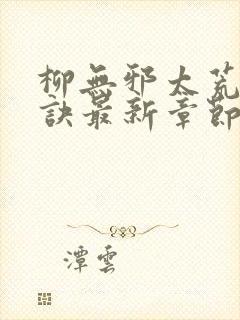 柳無邪太荒
訣最新章節
潭雲